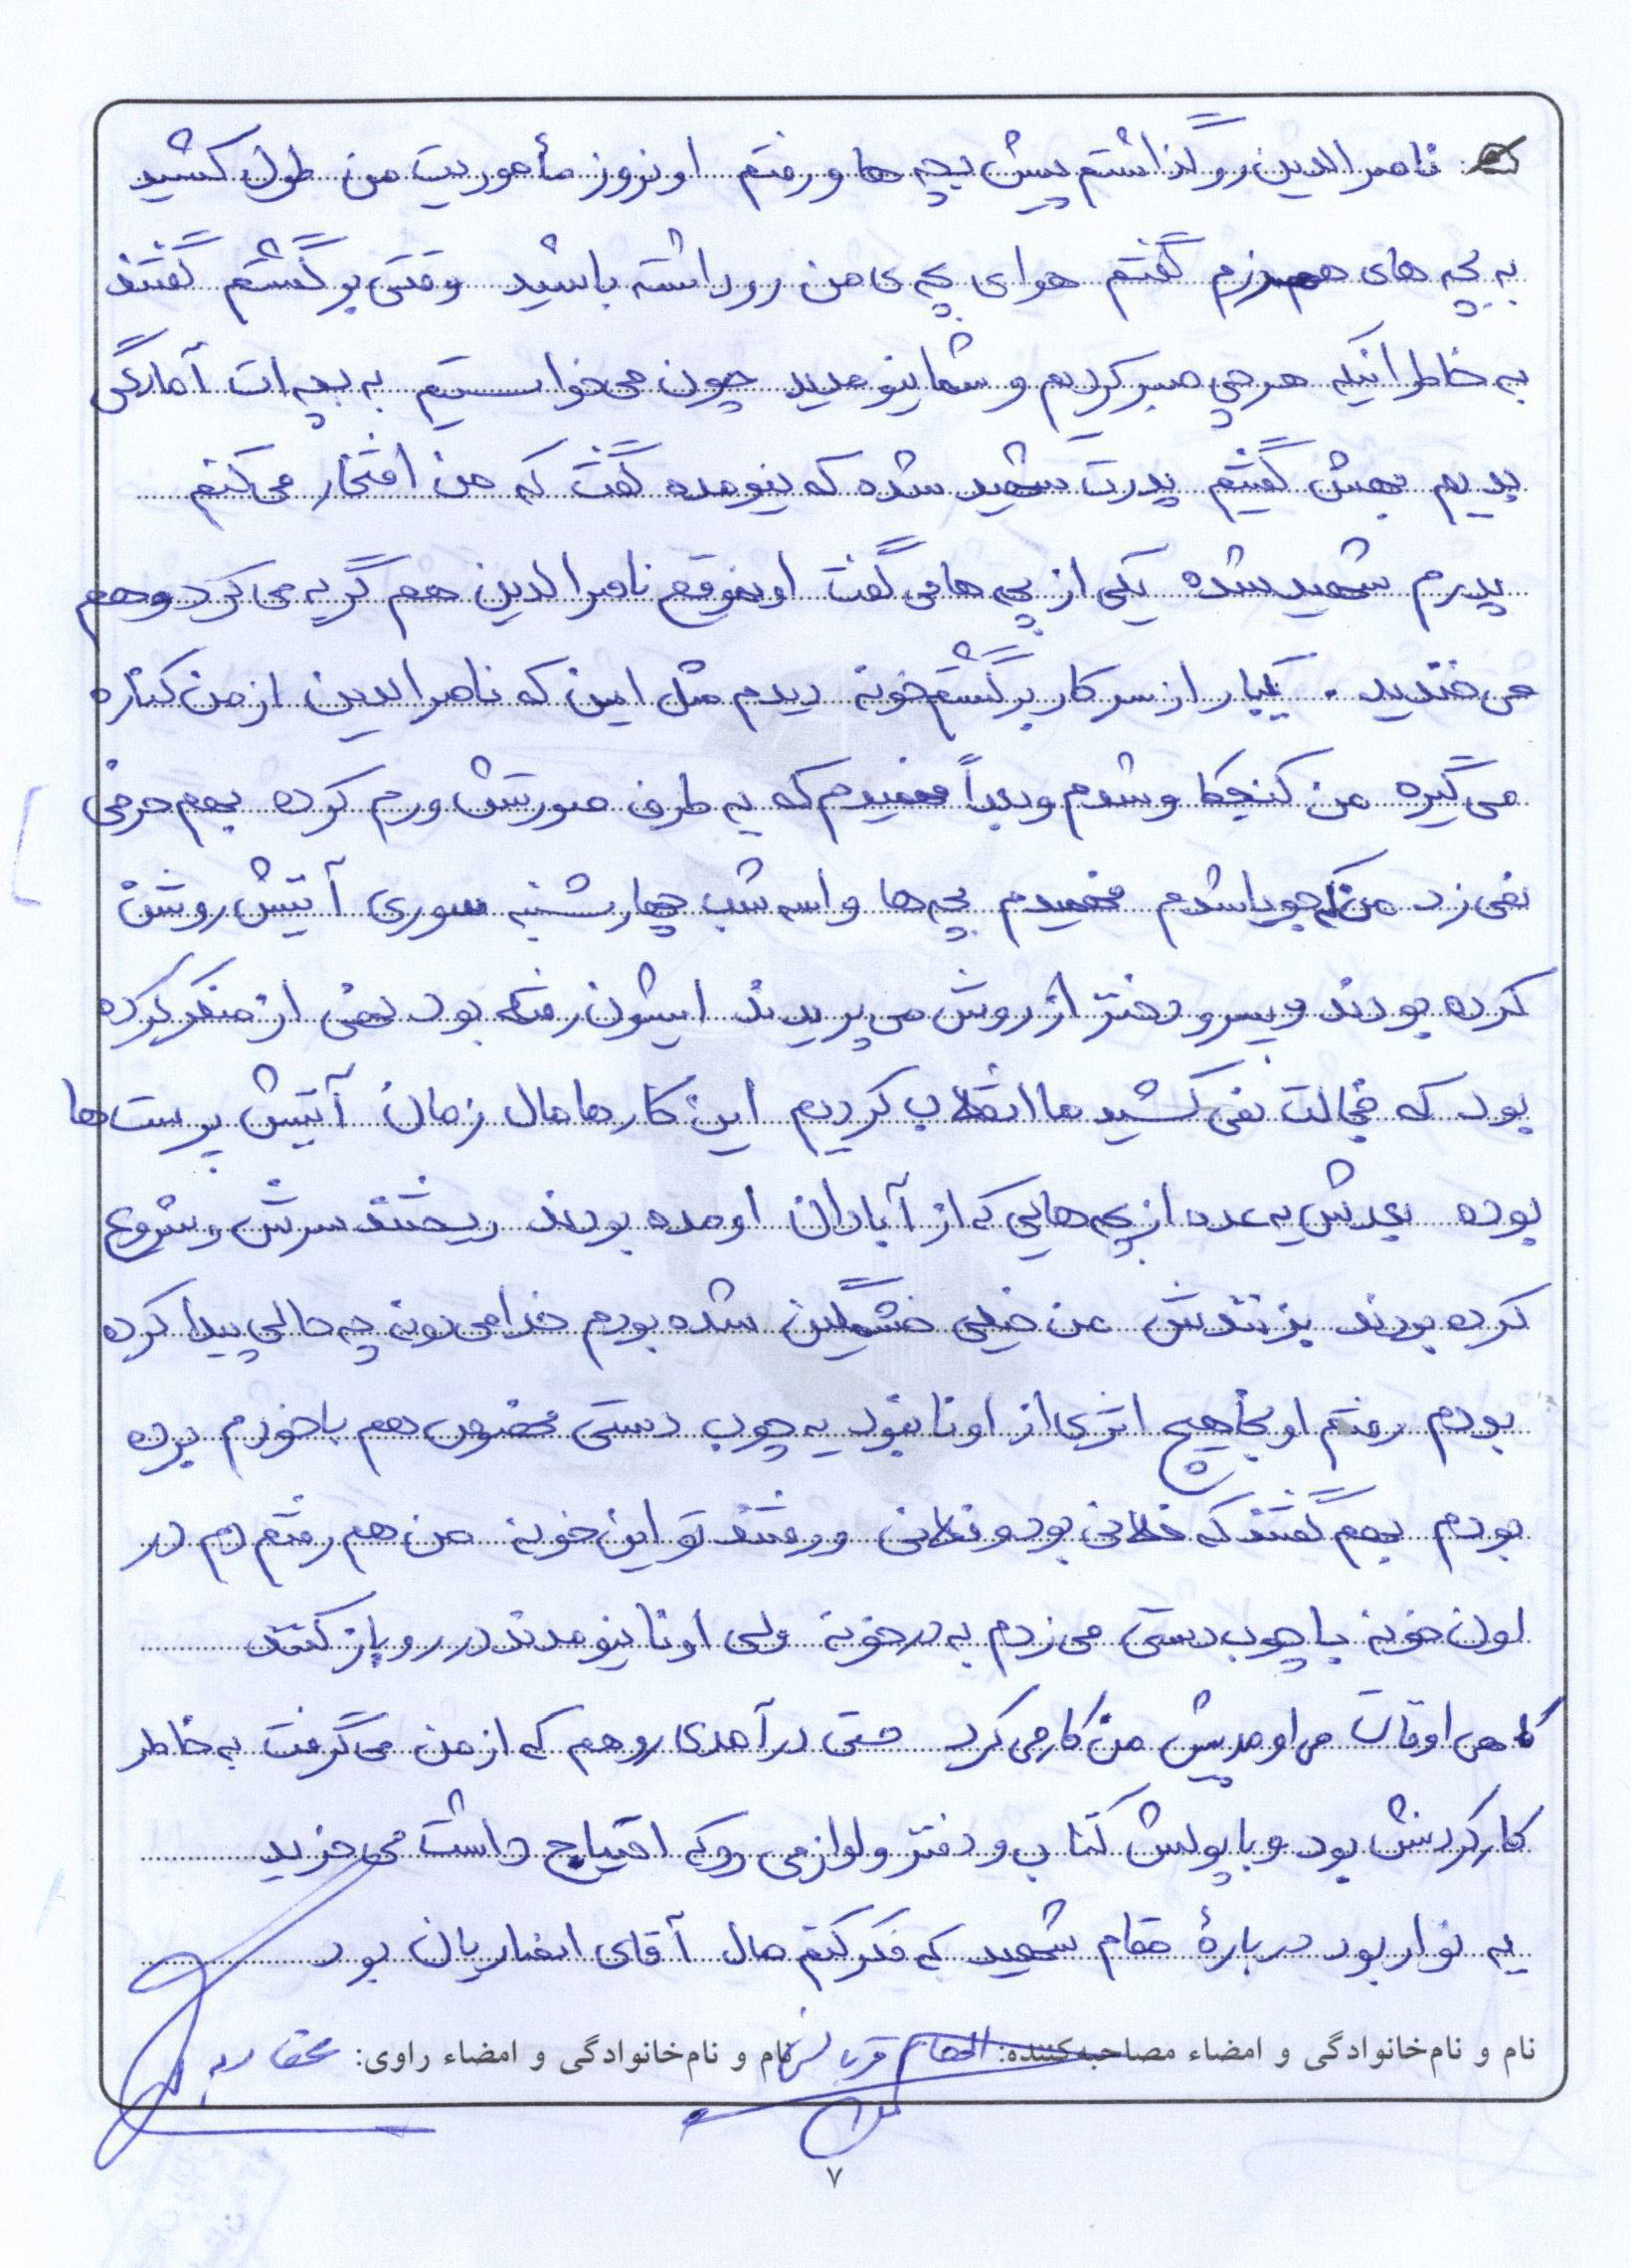 ناصرالدین رو گذاشتم پیش بچه ها و رفتم اونروز مأموریت من طول کشید
به بچه های همرزم گفتم هوای بچه ی من رو داشته باشید وقتی برگشتم گفتند
به خاطر اینکه هر چی صبر کردیم و شما نیومدید چون می خواستیم به بچه ات آمادگی
بدیم بهش گفتیم پدرت شهید شده که نیومده گفت که من افتخار می کنم
پدرم شهید شده یکی از بچه ها می گفت اونموقع ناصرالدین هم گریه می کرد و هم
می خندید . یکبار از سر کار برگشتم خونه دیدم مثل این که ناصرالدین از من کناره
می گیره من کنجکاو شدم و بعداً فهمیدم که یه طرف صورتش ورم کرده بهم حرفی
نمی زد من که جویا شدم فهمیدم بچه ها واسه شب چهارشنبه سوری آتیش روشن
کرده بودند و پسر و دختر از روش می پریدند ایشون رفته بود نهی از منکر کرده
بود که خجالت نمی کشید ما انقلاب کردیم این کارها مال زمان آتیش پرست ها
بوده بعدش یه عده از بچه هایی که از آبادان اومده بودند ریختند سرش و شروع
کرده بودند بزنندش من خیلی خشمگین شده بودم خدا می دونه چه حالی پیدا کرده
بودم رفتم اونجا هیچ اثری از اونا نبود یه چوب دستی مخصوص هم با خودم برده
بودم بهم گفتند که فلانی بود و فلانی و رفتند تو این خونه من هم رفتم دم در
اون خونه با چوب دستی می زدم به در خونه ولی اونا نیومدند در رو باز کنند
گاهی اوقات می اومد پیش من کار می کرد حتی درآمدی رو هم که از من می گرفت به خاطر
کار کردنش بود و با پولش کتاب و دفتر و لوازمی رو که احتیاج داشت می خرید
یه نوار بود دربارهٔ مقام شهید که فکر کنم مال آقای انصاریان بود
نام و نام‌خانوادگی و امضاء مصاحبه‌کننده: نام و نام‌خانوادگی و امضاء راوی:
۷